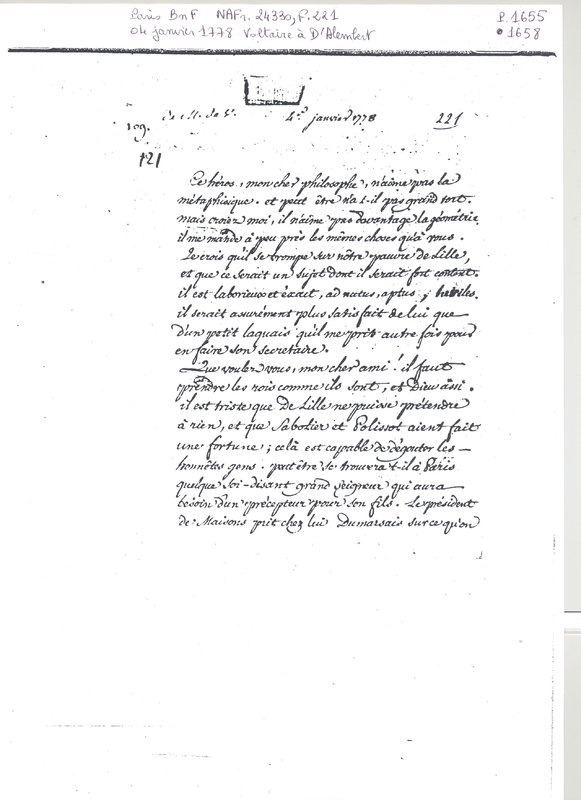 Paris BnF NAFr. 24330, f. 221
P. 1655
04 janvier 1778 Voltaire à D'Alembert
• 1658
de M. de V.
4e janvier 1778
221
109.
121
Ce héros, mon cher philosophe, n'aime pas la
métaphisique. et peut être n'a t-il pas grand tort.
mais croiez moi, il n'aime pas davantage la géométrie.
il me mande à peu près les mêmes choses qu'à vous.
Je crois qu'il se trompe sur nôtre pauvre de Lille,
et que ce serait un sujet dont il serait fort content.
il est laborieux et éxact, ad nutus, aptus,
il serait assurément plus satisfait de lui que
d'un petit laquais qu'il me prit autre fois pour
en faire son secretaire.
Que voulez vous, mon cher ami! il faut
prendre les rois comme ils sont, et Dieu aussi.
il est triste que de Lille ne puisse prétendre
à rien, et que Sabotier et Polissot aient fait
une fortune; celà est capable de dégouter les
honnêtes gens. peut être se trouvera t-il à Paris
quelque soi-disant grand seigneur qui aura
besoin d'un précepteur pour son fils. Le président
de Maisons prit chez lui Dumarsais sur ce qu'on